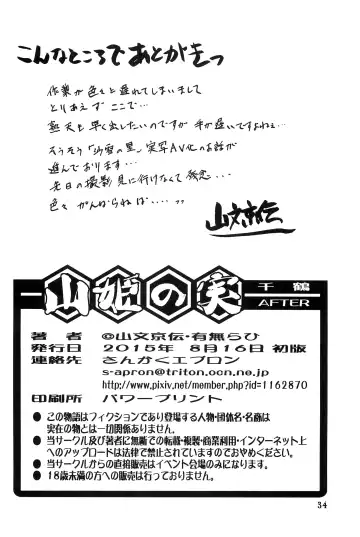 こんなところであとがきっ
作業が色々と遅れてしまいまして
とりあえずここで…
も早く出したいのですが 手が遅いですよねぇ…
そうそう「沙雪の里」実写AV化のお話が
進んでおります…
先日の撮影見に行けなくて残念…
色々 がんばらねば…
山文京伝
山姫の実
千鶴
AFTER
著者 ©山文京伝・有無らひ
発行日 2015年 8月16日 初版
連絡先 さんかくエプロン
s-apron@triton.ocn.ne.jp
http://www.pixiv.net/member.php?id=1162870
印刷所 パワープリント
● この物語はフィクションであり登場する人物・団体名・名商は
実在の物とは一切関係ありません。
● 当サークル及び著者に無断での転載・複製・商業利用・インターネット上
へのアップロードは法律で禁止されていますのでおやめください。
● 当サークルからの直接販売はイベント会場のみになります。
● 18歳未満の方への販売は行っておりません。
34